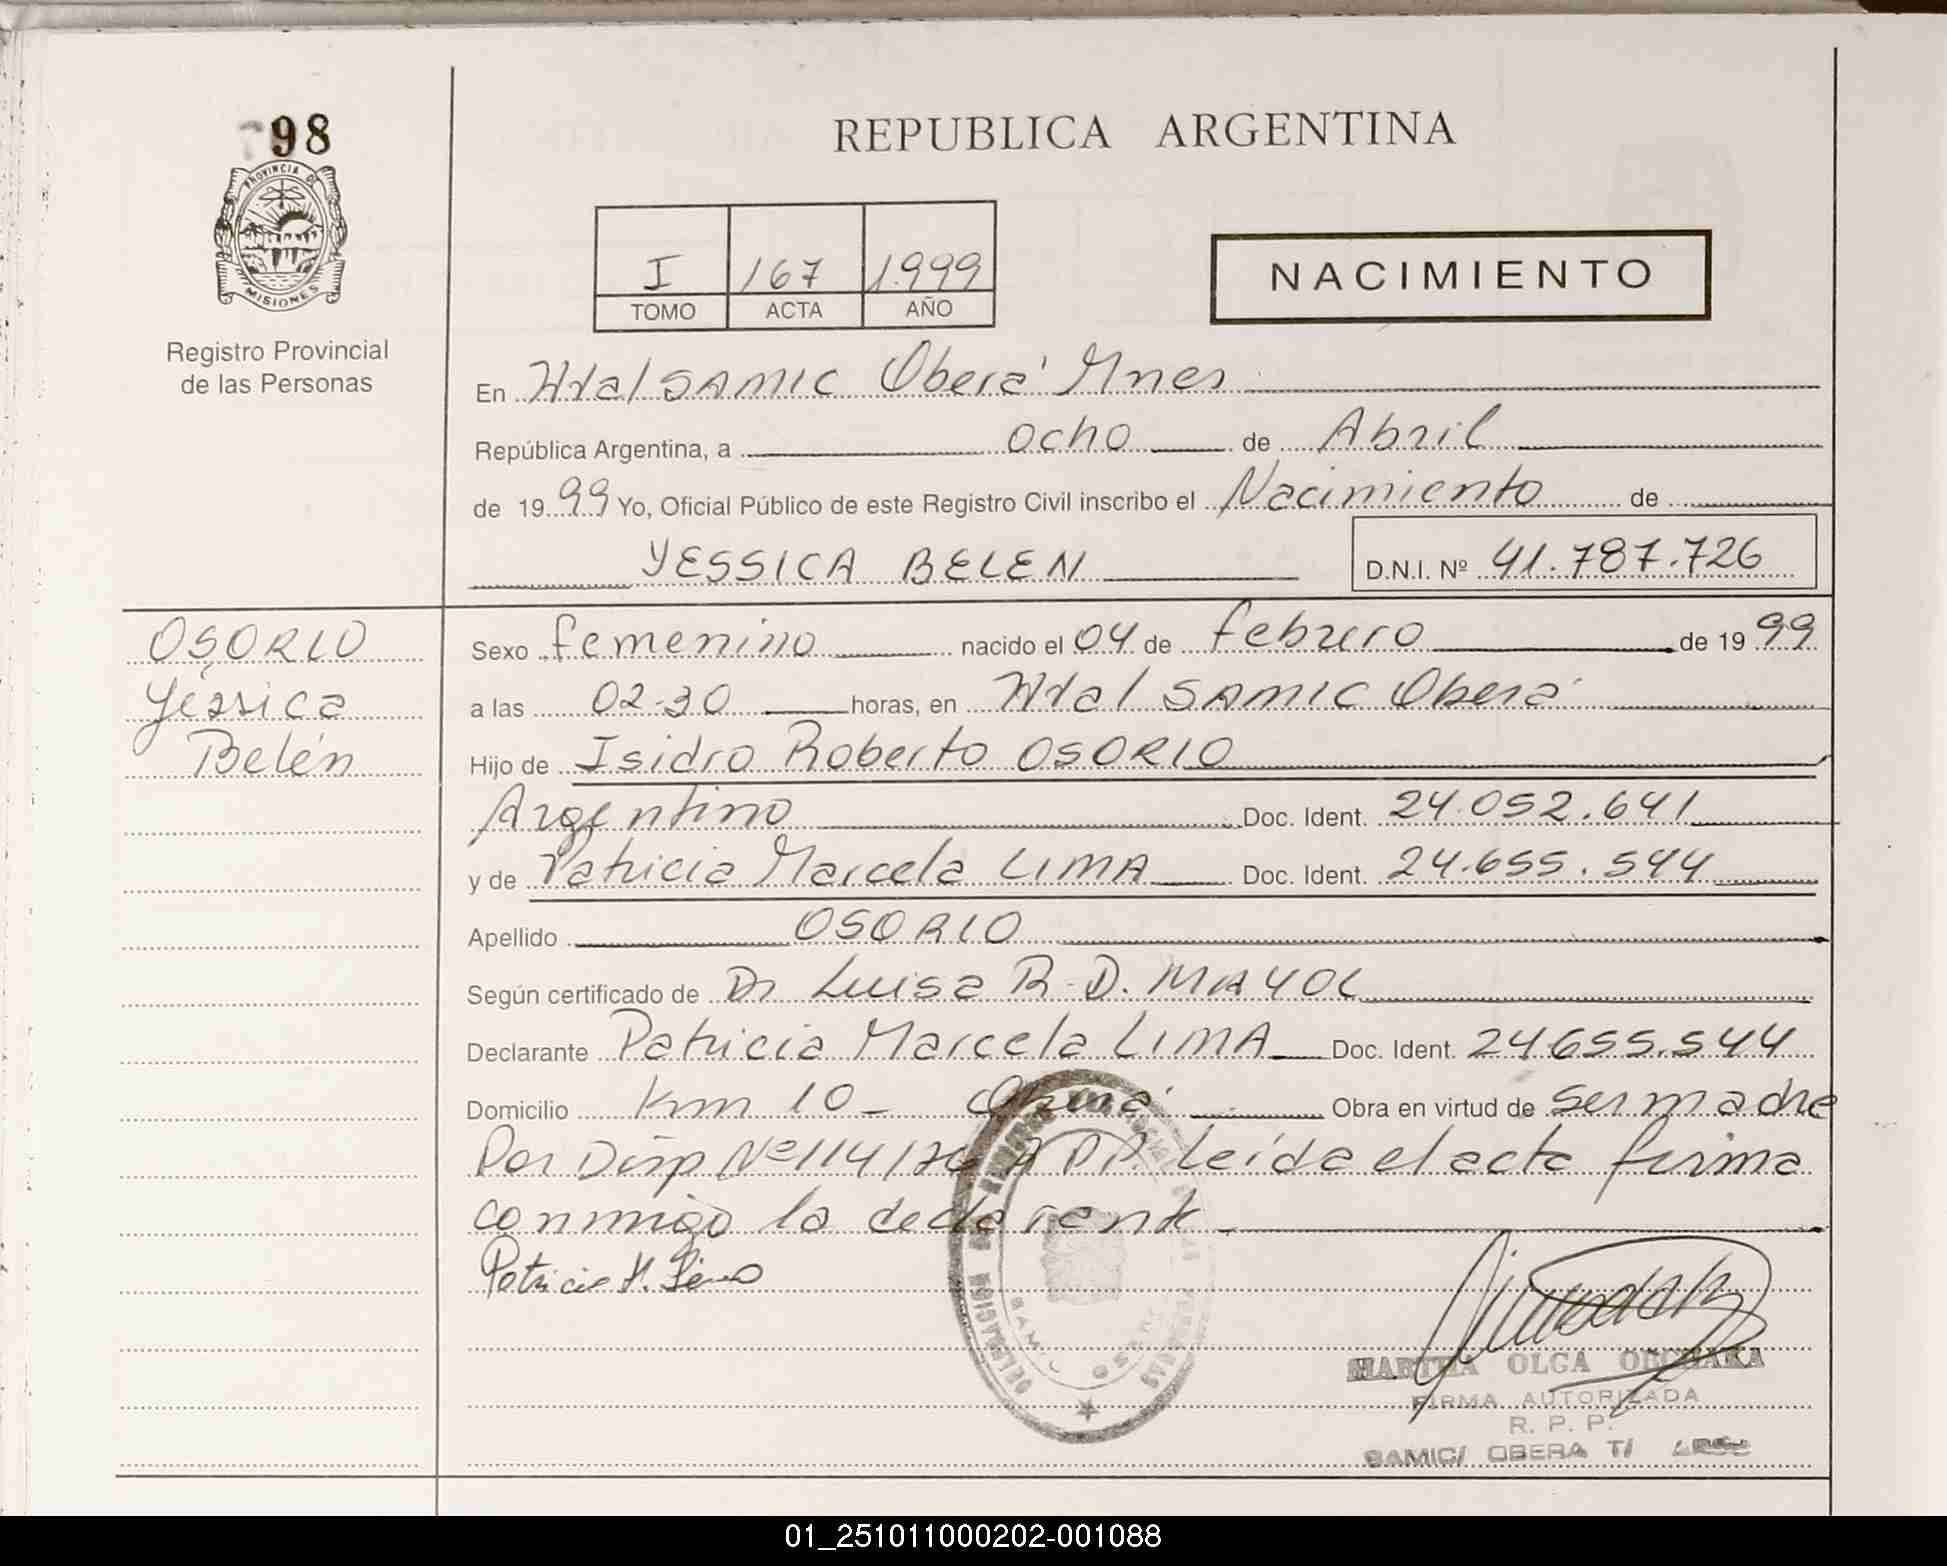 98
PROVINCIA DE
MISIONES
Registro Provincial
de las Personas
REPUBLICA ARGENTINA
I 167 1.999
TOMO ACTA AÑO
NACIMIENTO
En Htal SAMIC Oberá Mnes
República Argentina, a ocho de Abril
de 1999 Yo, Oficial Público de este Registro Civil inscribo el Nacimiento de
YESSICA BELEN D.N.I. Nº 41.787.726
OSORIO
Yéssica
Belén
Sexo femenino nacido el 04 de febrero de 1999
a las 02.30 horas, en Htal SAMIC Oberá
Hijo de Isidro Roberto OSORIO
Argentino Doc. Ident. 24.052.641
y de Patricia Marcela LIMA Doc. Ident. 24.655.544
Apellido OSORIO
Según certificado de Dr Luisa R. D. MAYOL
Declarante Patricia Marcela LIMA Doc. Ident. 24655.544
Domicilio Km 10 - Oberá Obra en virtud de ser madre
Por Disp Nº 114/ leída el acta firma
conmigo la declarante
Patricia M. Lima
DELEGACION
SAMIC
OLGA
FIRMA AUTORIZADA
R. P. P.
SAMIC/ OBERA T/
01_251011000202-001088